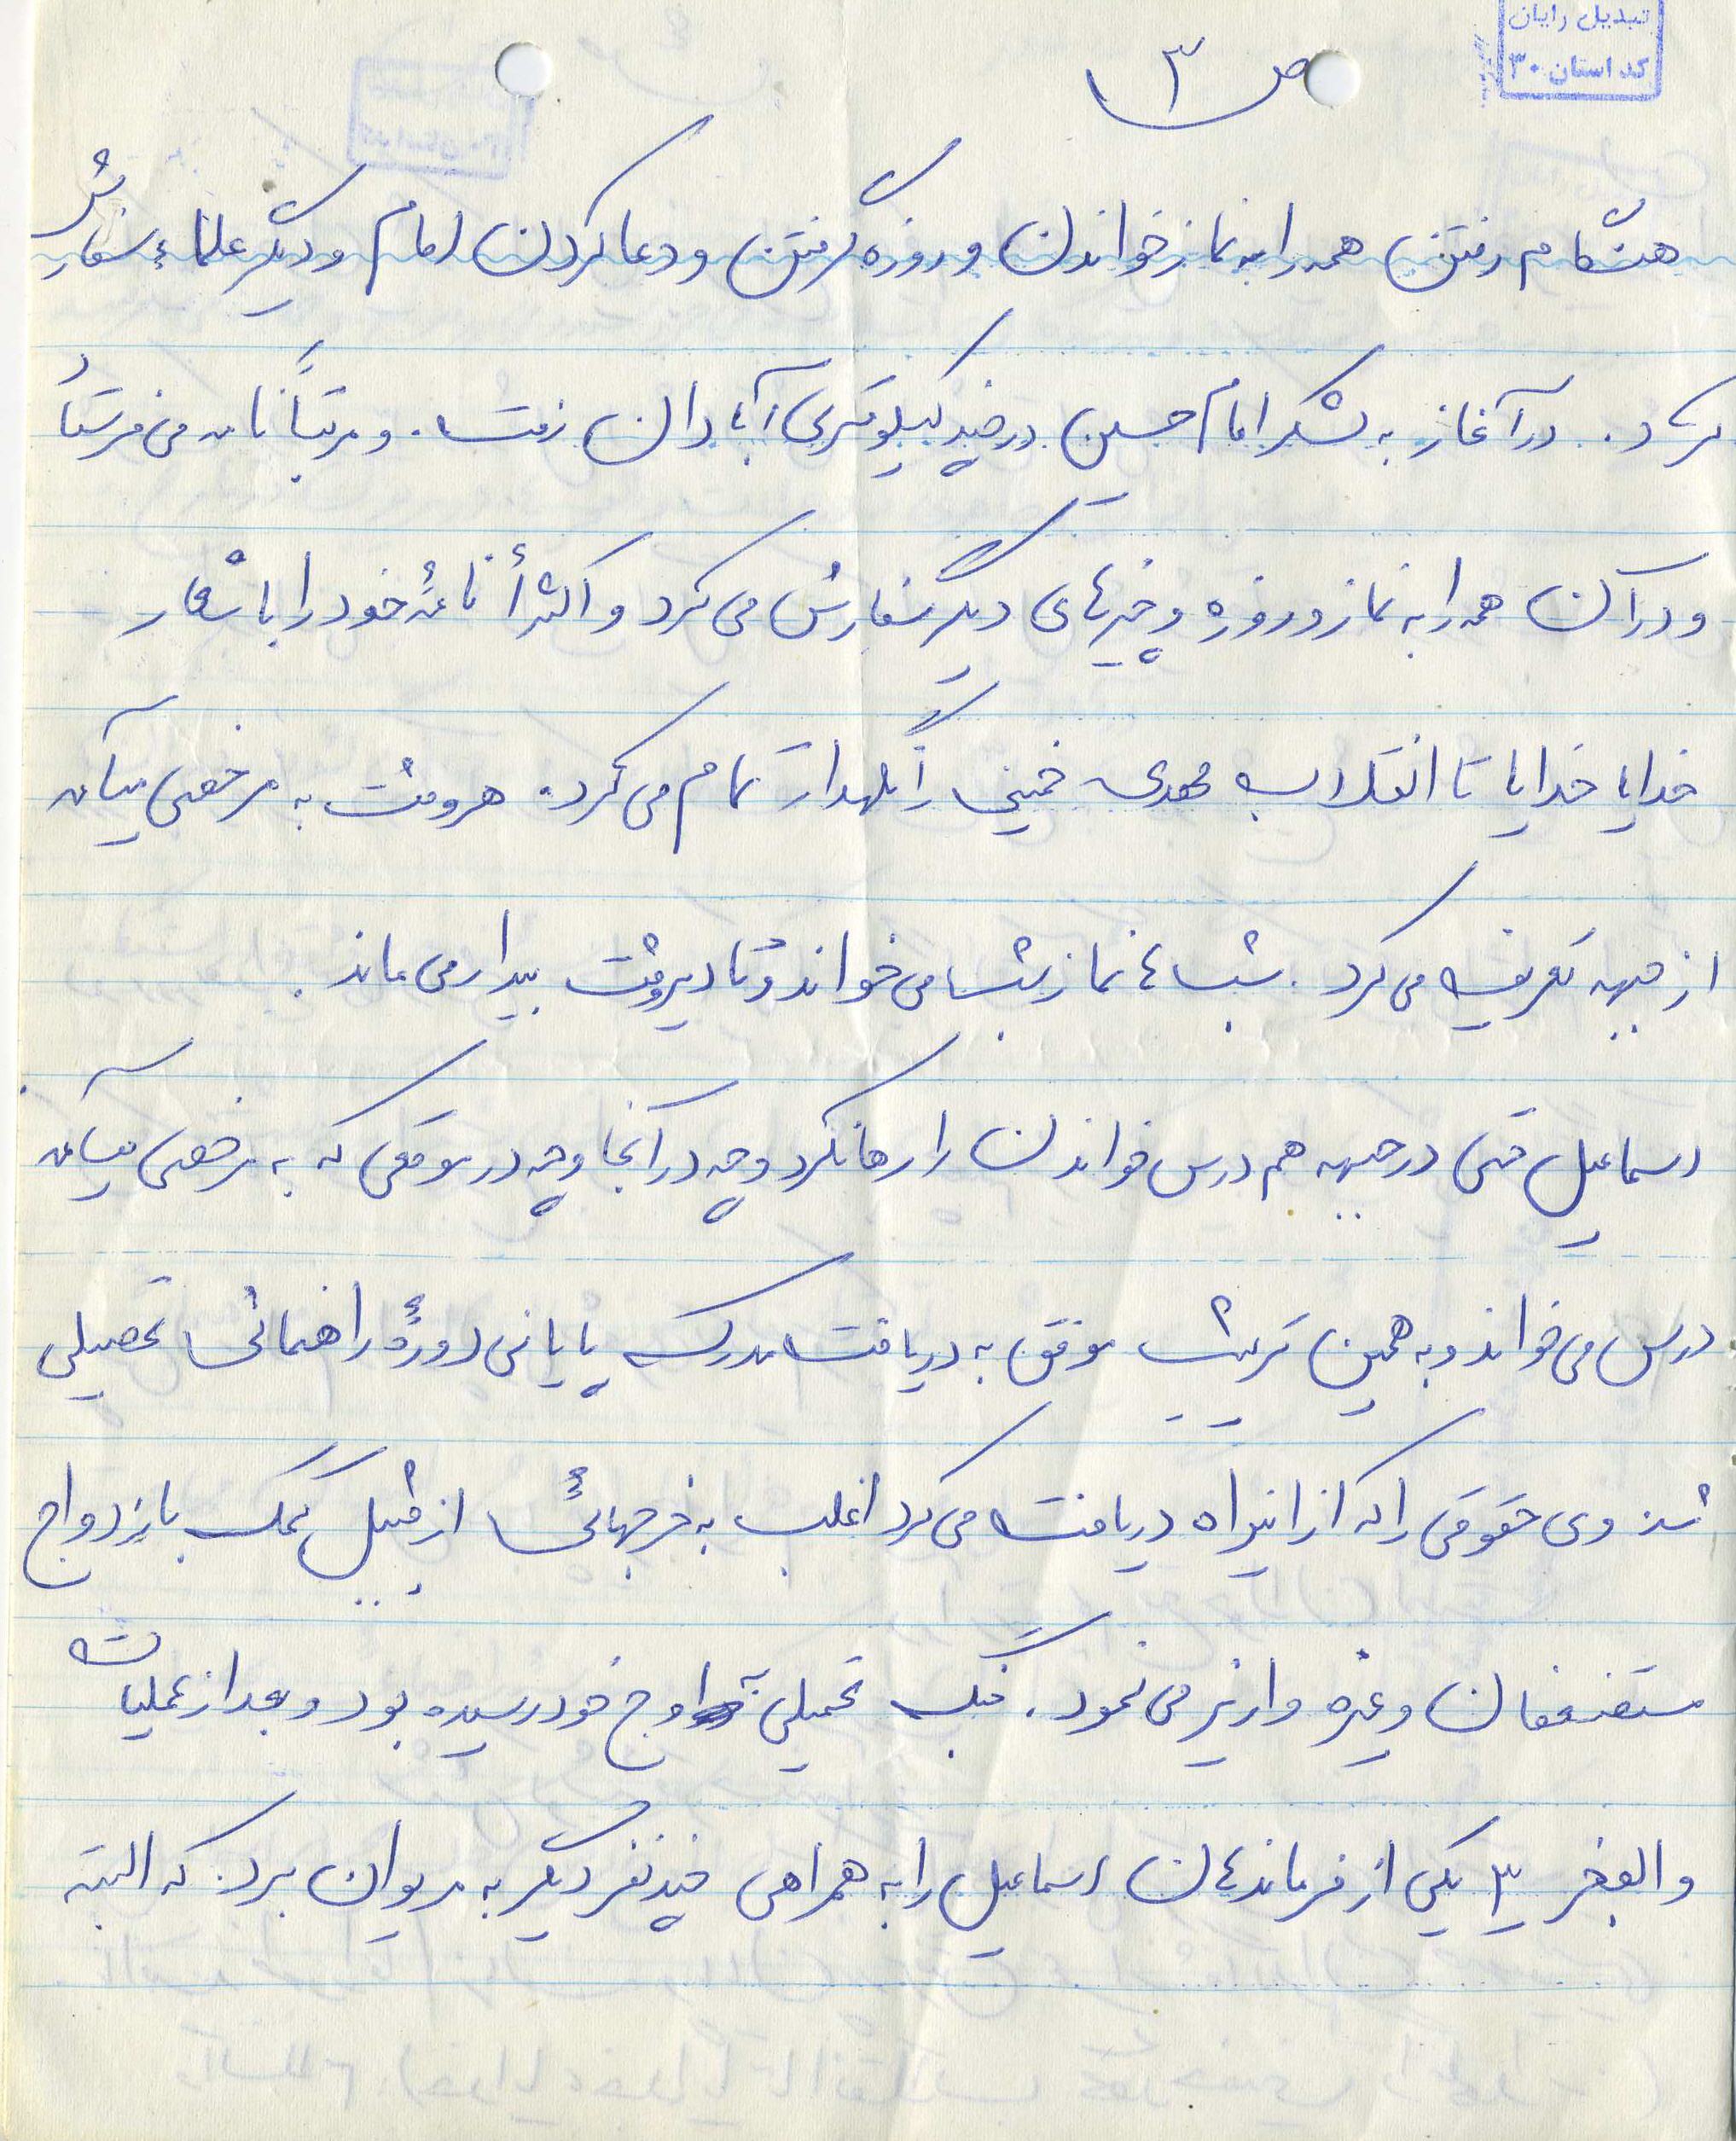 تبدیل رایان
کد استان ۳۰
ص ۳
هنگام رفتن همه را به نماز خواندن و روزه گرفتن و دعا کردن امام و دیگر علماء سفارش
میکرد. در آغاز به لشکر امام حسین در چند کیلومتری آبادان رفت. و مرتباً نامه می فرستاد
و در آن همه را به نماز و روزه و چیزهای دیگر سفارش می کرد و اکثراً نامۀ خود را با شعار
خدایا خدایا تا انقلاب مهدی خمینی را نگهدار تمام می کرد. هر وقت به مرخصی میآمد
از جبهه تعریف می کرد. شبها نماز شب می خواند و تا دیر وقت بیدار می ماند.
اسماعیل حتی در جبهه هم درس خواندن را رها نکرد و چه در آنجا و چه در موقعی که به مرخصی میآمد
درس می خواند و به همین ترتیب موفق به دریافت مدرک پایانی دورۀ راهنمائی تحصیلی
شد وی حقوقی را که از این راه دریافت می کرد اغلب به خرجهائی از قبیل کمک به ازدواج
مستضعفان و غیره واریز می نمود. جنگ تحمیلی به اوج خود رسیده بود و بعد از عملیات
والفجر ۳ یکی از فرماندهان اسماعیل را به همراهی چند نفر دیگر به مریوان برد. که البته